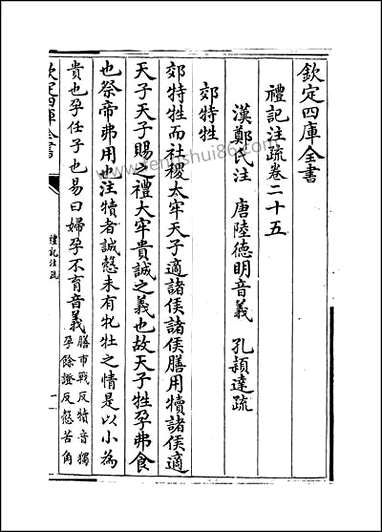 欽定四庫全書
禮記注疏卷二十五
漢鄭氏注 唐陸德明音義 孔穎達疏
郊特牲
郊特牲而社稷太牢天子適諸侯諸侯膳用犢諸侯適
天子天子賜之禮大牢貴誠之義也故天子牲孕弗食
也祭帝弗用也注犢者誠慤未有牝牡之情是以小為
貴也孕任子也易曰婦孕不育音義膳市戰反犢音獨
孕餘證反慤苦角
欽定四庫全書
禮記注疏
一